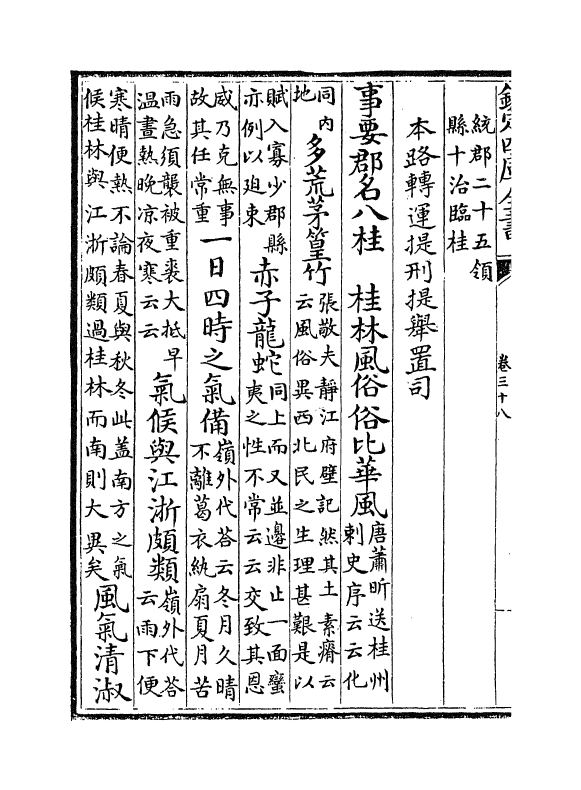 欽定四庫全書 卷三十八
統郡二十五領
縣十治臨桂
本路轉運提刑提舉置司
事要郡名八桂 桂林風俗俗比華風
唐蕭昕送桂州
刺史序云云化
同内
地
多荒茅篁竹
張敬夫靜江府壁記然其土素瘠云
云風俗異西北民之生理甚艱是以
賦入寡少郡縣
亦例以廹束
赤子龍蛇
同上而又並邊非止一面蠻
夷之性不常云云交致其恩
威乃克無事
故其任常重
一日四時之氣備
嶺外代荅云冬月久晴
不離葛衣紈扇夏月苦
雨急須襲被重裘大抵早
温晝熱晚凉夜寒云云
氣候與江浙頗類
嶺外代荅
云雨下便
寒晴便熱不論春夏與秋冬此盖南方之氣
候桂林與江浙頗類過桂林而南則大異矣
風氣清淑